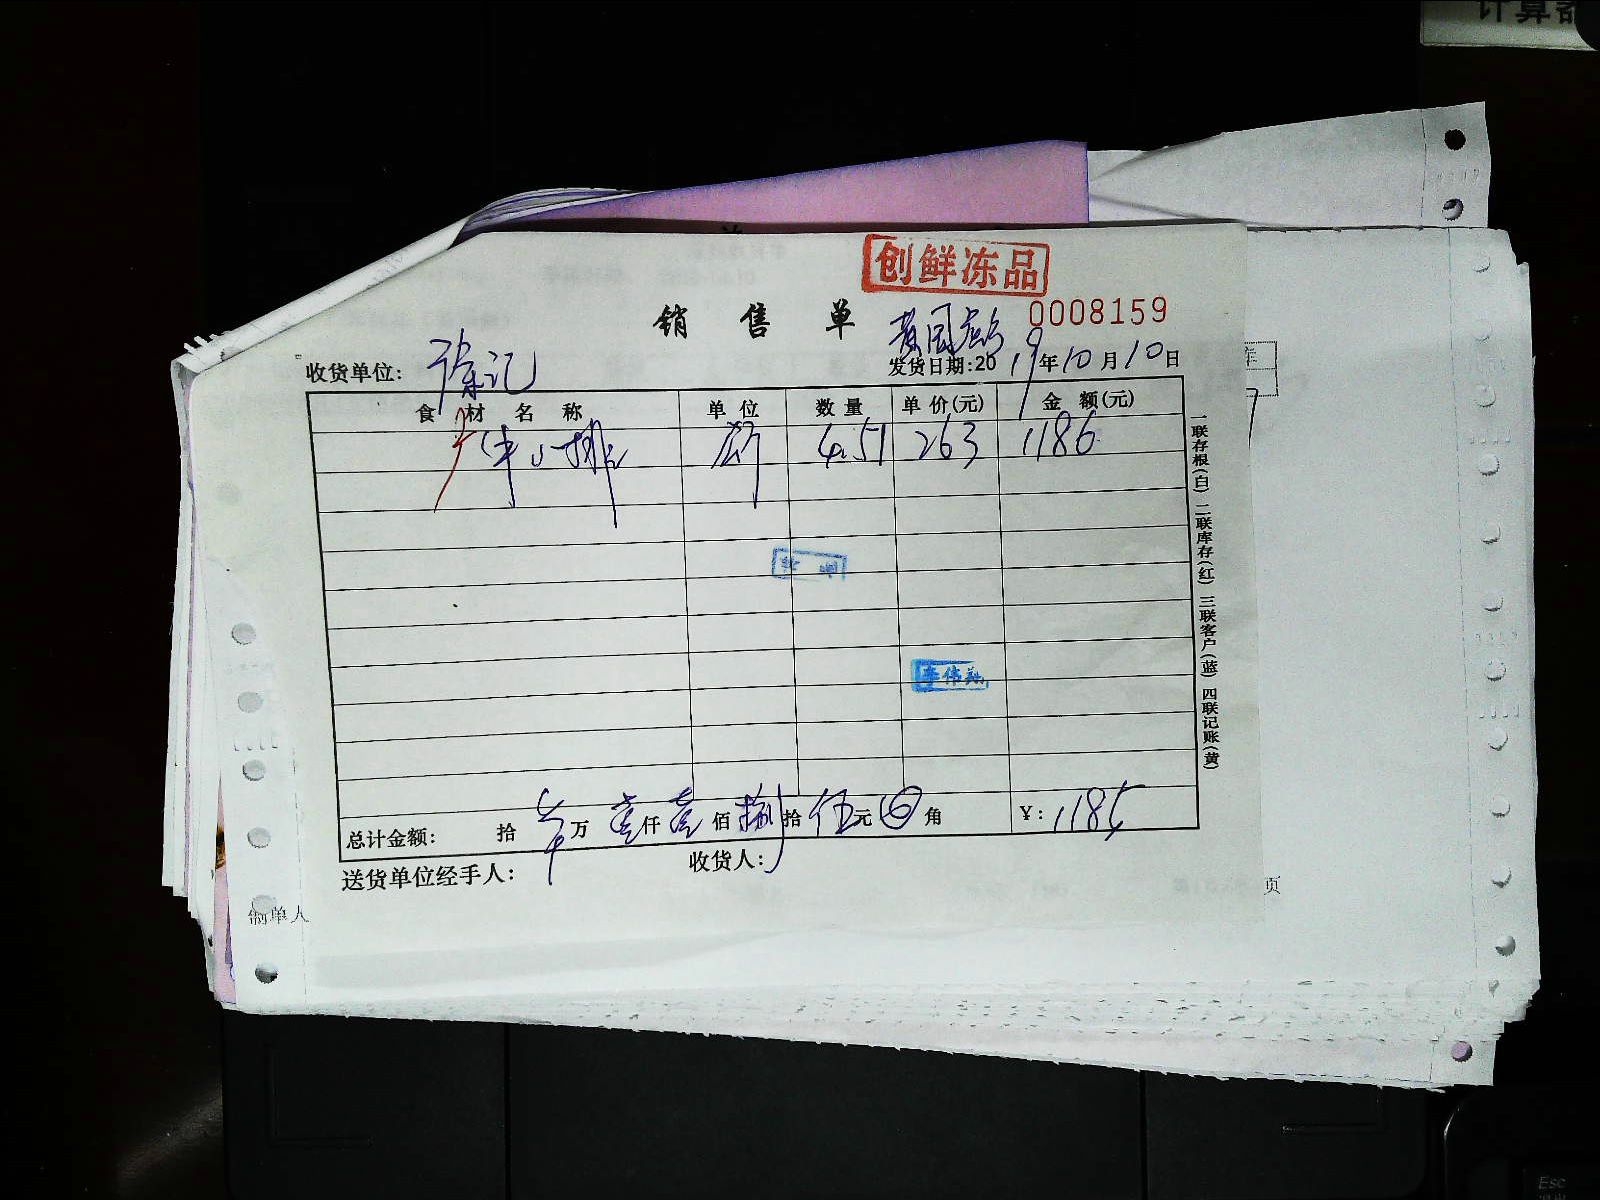 计算器
创鲜冻品
销售单
0008159
收货单位:徐记
发货日期:2019年10月10日
食材名称 单位 数量 单价(元) 金额(元)
牛小排 斤 4.51 263 1186
李伟翔
总计金额: 拾 万壹仟壹佰捌拾伍元 角 ¥:1185
送货单位经手人: 收货人:
一联存根(白) 二联库存(红) 三联客户(蓝) 四联记账(黄)
制单人
页
Esc